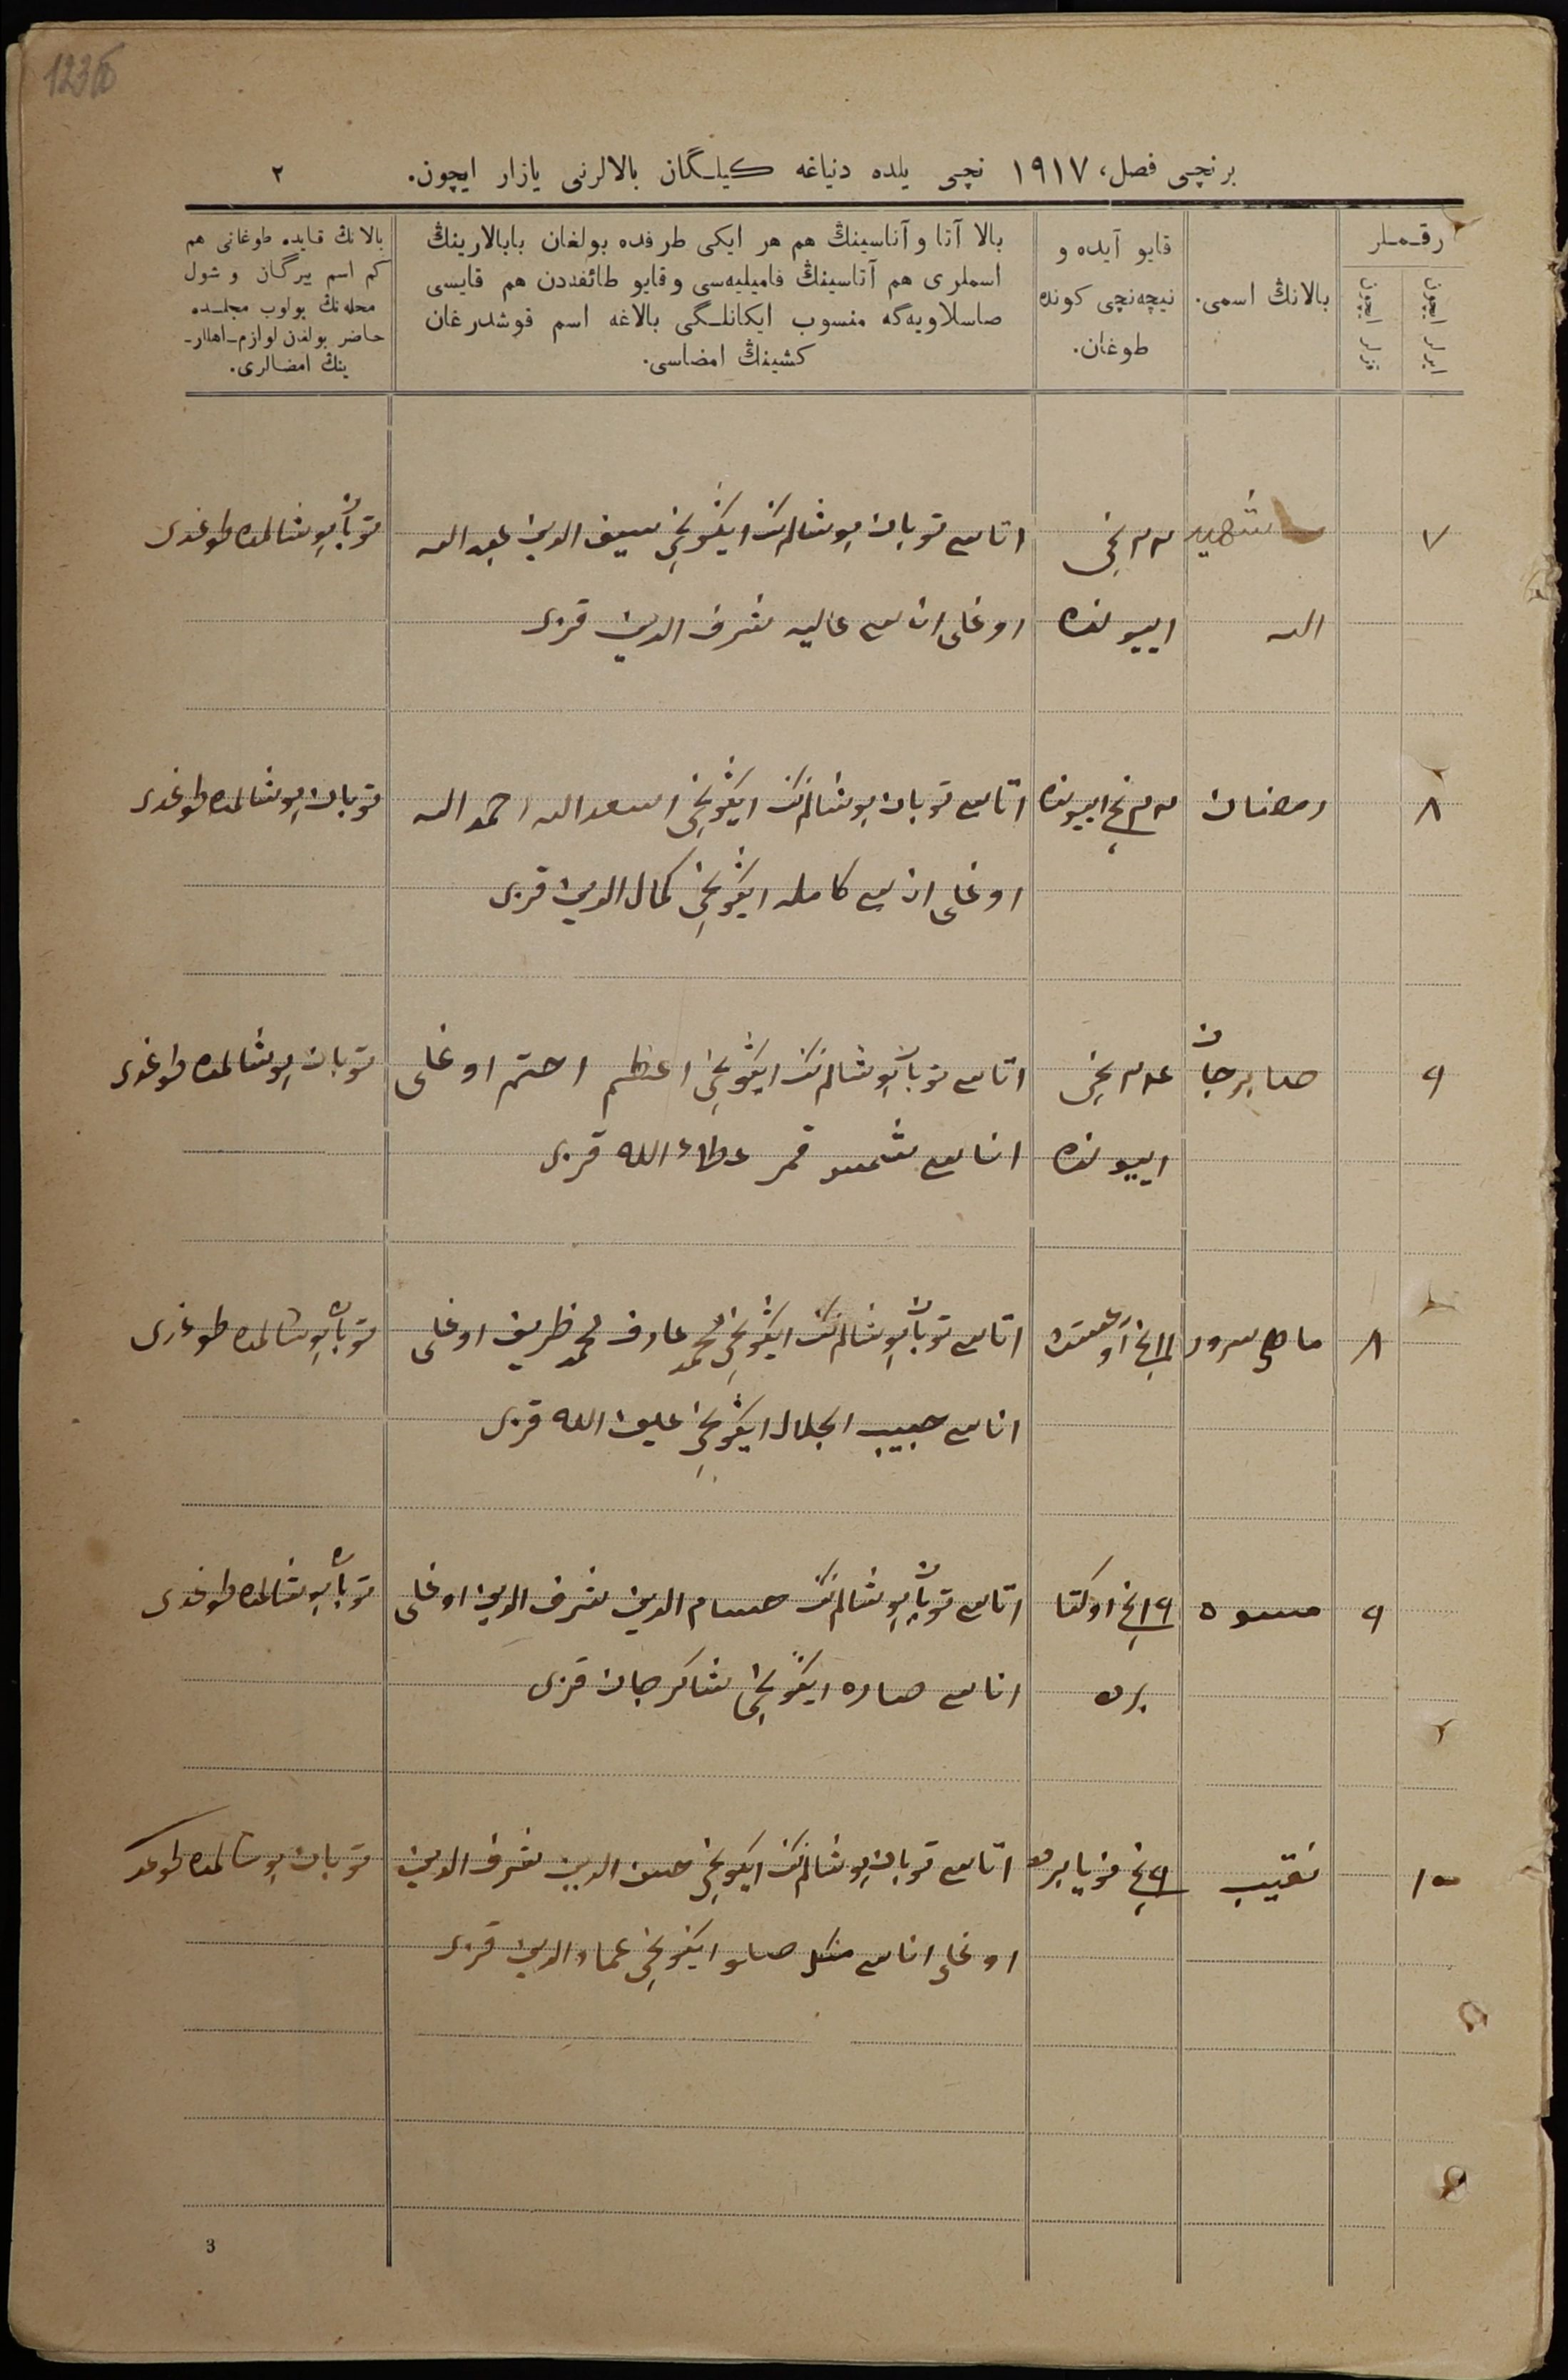 123б
برنچی فصل، ١٩١٧ نچی یلده دنیاغه كیلـگان بالالرنی یازار ایچون.
٢
رقـملر
ایرلر ایچون
قزلر ایچون
بالانڭ اسمی.
قایو آیده و
نیچه‌نچی كونده
طوغان.
بالا آتا و آناسینڭ هم هر ایكی طرفده بولغان بابالارینڭ
اسملری هم آتاسینڭ فامیلیه‌سی و قایو طائفه‌دن هم قایسی
صاسلاویه‌گه منسوب ایكانلـگی بالاغه اسم قوشدرغان
كشینڭ امضاسی.
بالانڭ قایده طوغانی هم
كم اسم بیرگان و شول
محله‌نڭ بولوب مجلـسده
حاضر بولغان لوازم-اهلار-
ینڭ امضالری.
٧
الله
٢٢ نچی
اییونده
اتاسی توبان بوشالم‌نڭ ایگونچی سیف الدین عبد الله
اوغلی اناسی عالیه شرف الدین قزی
توبان بوشالمده طوغدی
٨
رمضان
٢٢ نچی اییونده
اتاسی توبان بوشالم‌نڭ ایگونچی اسعد الله احمد الله
اوغلی اناسی كامله ایگونچی كمال الدین قزی
توبان بوشالمده طوغدی
٩
صابرجان
٢٤ نچی
اییونده
اتاسی توبان بوشالم‌نڭ ایگونچی اعظم احتم اوغلی
اناسی شمس قمر عطاء الله قزی
توبان بوشالمده طوغدی
٨
ماه سرور
١١ نچی اوغستده
اتاسی توبان بوشالم‌نڭ ایگونچی محمد عارف محمد ظریف اوغلی
اناسی حبیب الجلال ایگونچی قزی
توبان بوشالمده طوغدی
٩
١٩ نچی اوكتا
برده
اتاسی توبان بوشالم‌نڭ حسام الدین شرف الدین اوغلی
اناسی ساره ایگونچی شاكرجان قزی
توبان بوشالمده طوغدی
١٠
نقیب
٩ نچی نویابرده
اتاسی توبان بوشالم‌نڭ ایگونچی حسن الدین شرف الدین
اوغلی اناسی ایگونچی عماد الدین قزی
توبان بوشالمده طوغدی
3